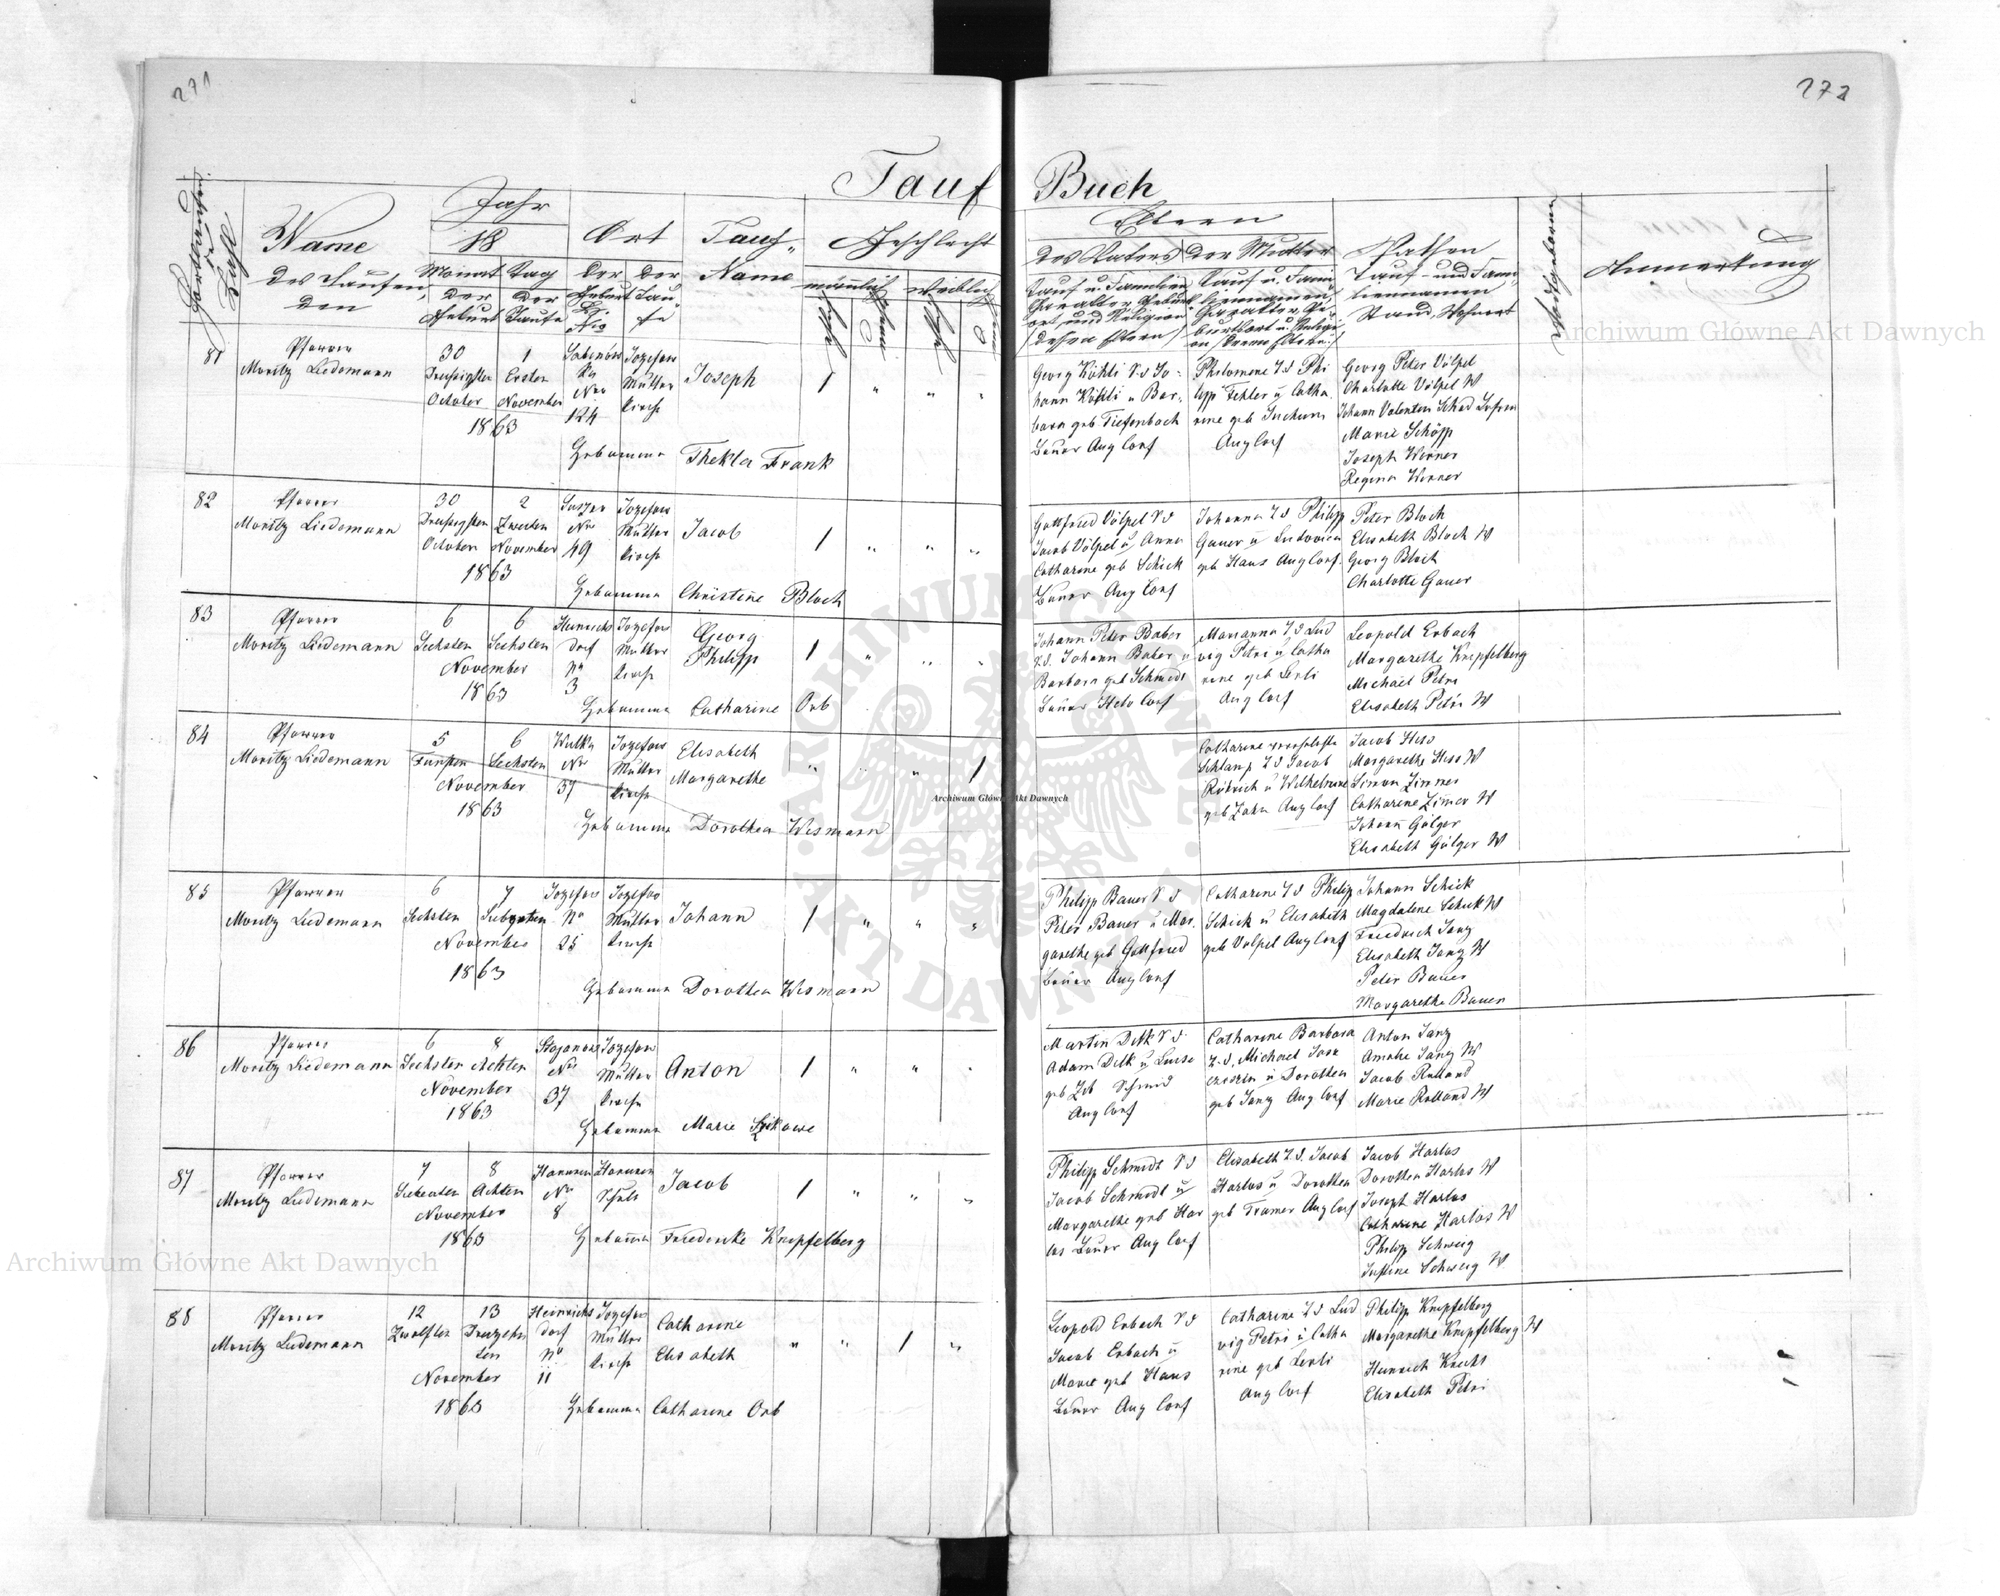 271
272
Tauf Buch
Fortlaufende Zahl
Name
des Taufen
den
Jahr
18
Monat
der
Geburt
Tag
der
Taufe
Ort
der
Geburt
der
Tau-
fe
Tauf-
Name
Geschlecht
männlich
weiblich
Eltern
des Vaters
der Mutter
Pathen
Tauf- und Fami-
liennamen
Stand, Wohnort
Anmerkung
81
Pfarrer
Moritz Liedemann
30
Dreissigsten
October
1
Ersten
November
1863
No
124
Jozefow
Mutter
Kirche
Joseph
1
Hebamme Thekla Frank
Georg Köhli S. d. Jo-
hann Köhli u Bar-
bara geb Tiefenbach
Bauer Aug Conf
Philomene T d Phi
lipp Fehler u Catha
rine geb
Aug Conf
Georg Peter Völpel
Charlotte Völpel W
Johann Valentin Schad
Marie Schöpp
Joseph Werner
Regina Werner
82
Pfarrer
Moritz Liedemann
30
Dreissigsten
October
2
Zweiten
November
1863
No
49
Jozefow
Mutter
Kirche
Jacob
1
Hebamme Christine Bloch
Gottfried Völpel S d
Jacob Völpel u Anna
Catharine geb Schick
Bauer Aug Conf
Johanna T d Philipp
Gauer u Ludovica
geb Haus Aug Conf.
Peter Bloch
Elisabeth Bloch W
Georg Bloch
Charlotte Gauer
83
Pfarrer
Moritz Liedemann
6
Sechsten
6
Sechsten
November
1863
Heinrichs
dorf
No
3
Jozefow
Mutter
Kirche
Georg
Philipp
1
Hebamme Catharine Orb
Johann Peter Baber
S. d. Johann Baber u
Barbara geb Schmidt
Bauer Helv Conf
Marianna T d Lud
wig Petri u Catha
rine geb
Aug Conf
Leopold Erbach
Margarethe Knipfelberg
Michael Petri
Elisabeth Petri W
84
Pfarrer
Moritz Liedemann
5
Fünften
6
Sechsten
November
1863
Wulka
No
37
Jozefow
Mutter
Kirche
Elisabeth
Margarethe
1
Hebamme Dorothea Wismann
Catharine
Schlamp T d Jacob
u Wilhelmine
geb Zahn Aug Conf
Jacob Hess
Margarethe Hess W
Simon Zimmer
Catharine Zimer W
Johann Gölger
Elisabeth Gölger W
85
Pfarrer
Moritz Liedemann
6
Sechsten
7
Siebenten
November
1863
Jozefow
No
25
Jozefow
Mutter
Kirche
Johann
1
Hebamme Dorothea Wismann
Philipp Bauer S d
Peter Bauer u Mar-
garethe geb Gottfried
Bauer Aug Conf
Catharine T d Philipp
Schick u Elisabeth
geb Völpel Aug Conf
Johann Schick
Magdalene Schick W
Friedrich Janz
Elisabeth Janz W
Peter Bauer
Margarethe Bauer
86
Pfarrer
Moritz Liedemann
6
Sechsten
8
Achten
November
1863
Stojanow
No
37
Jozefow
Mutter
Kirche
Anton
1
Hebamme Marie
Martin Dilk S d
Adam Dilk u Luise
geb
Aug Conf
Catharine Barbara
T. d. Michael
u Dorothea
geb Janz Aug Conf
Anton Janz
Amalie Janz W
Jacob Rolland
Marie Rolland W
87
Pfarrer
Moritz Liedemann
7
Siebenten
8
Achten
November
1863
Hanunin
No
8
Hanunin
Schule
Jacob
1
Hebamme Friedericke Knipfelberg
Philipp Schmidt S d
Jacob Schmidt u
Margarethe geb Har
las Bauer Aug Conf
Elisabeth T. d. Jacob
Harlas u Dorothea
geb Kramer Aug Conf
Jacob Harlas
Dorothea Harlas W
Joseph Harlas
Catharine Harlas W
Philipp Schweig
Justine Schweig W
88
Pfarrer
Moritz Liedemann
12
Zwölften
13
Dreizehn
ten
November
1863
Heinrichs
dorf
No
11
Jozefow
Mutter
Kirche
Catharine
Elisabeth
1
Hebamme Catharine Orb
Leopold Erbach S d
Jacob Erbach u
Marie geb Haus
Bauer Aug Conf
Catharine T d Lud
wig Petri u Catha
rine geb
Aug Conf
Philipp Knipfelberg
Margarethe Knipfelberg W
Heinrich Knecht
Elisabeth Petri
Archiwum Główne Akt Dawnych
Archiwum Główne Akt Dawnych
Archiwum Główne Akt Dawnych
ARCHIWUM GŁÓWNE AKT DAWNYCH